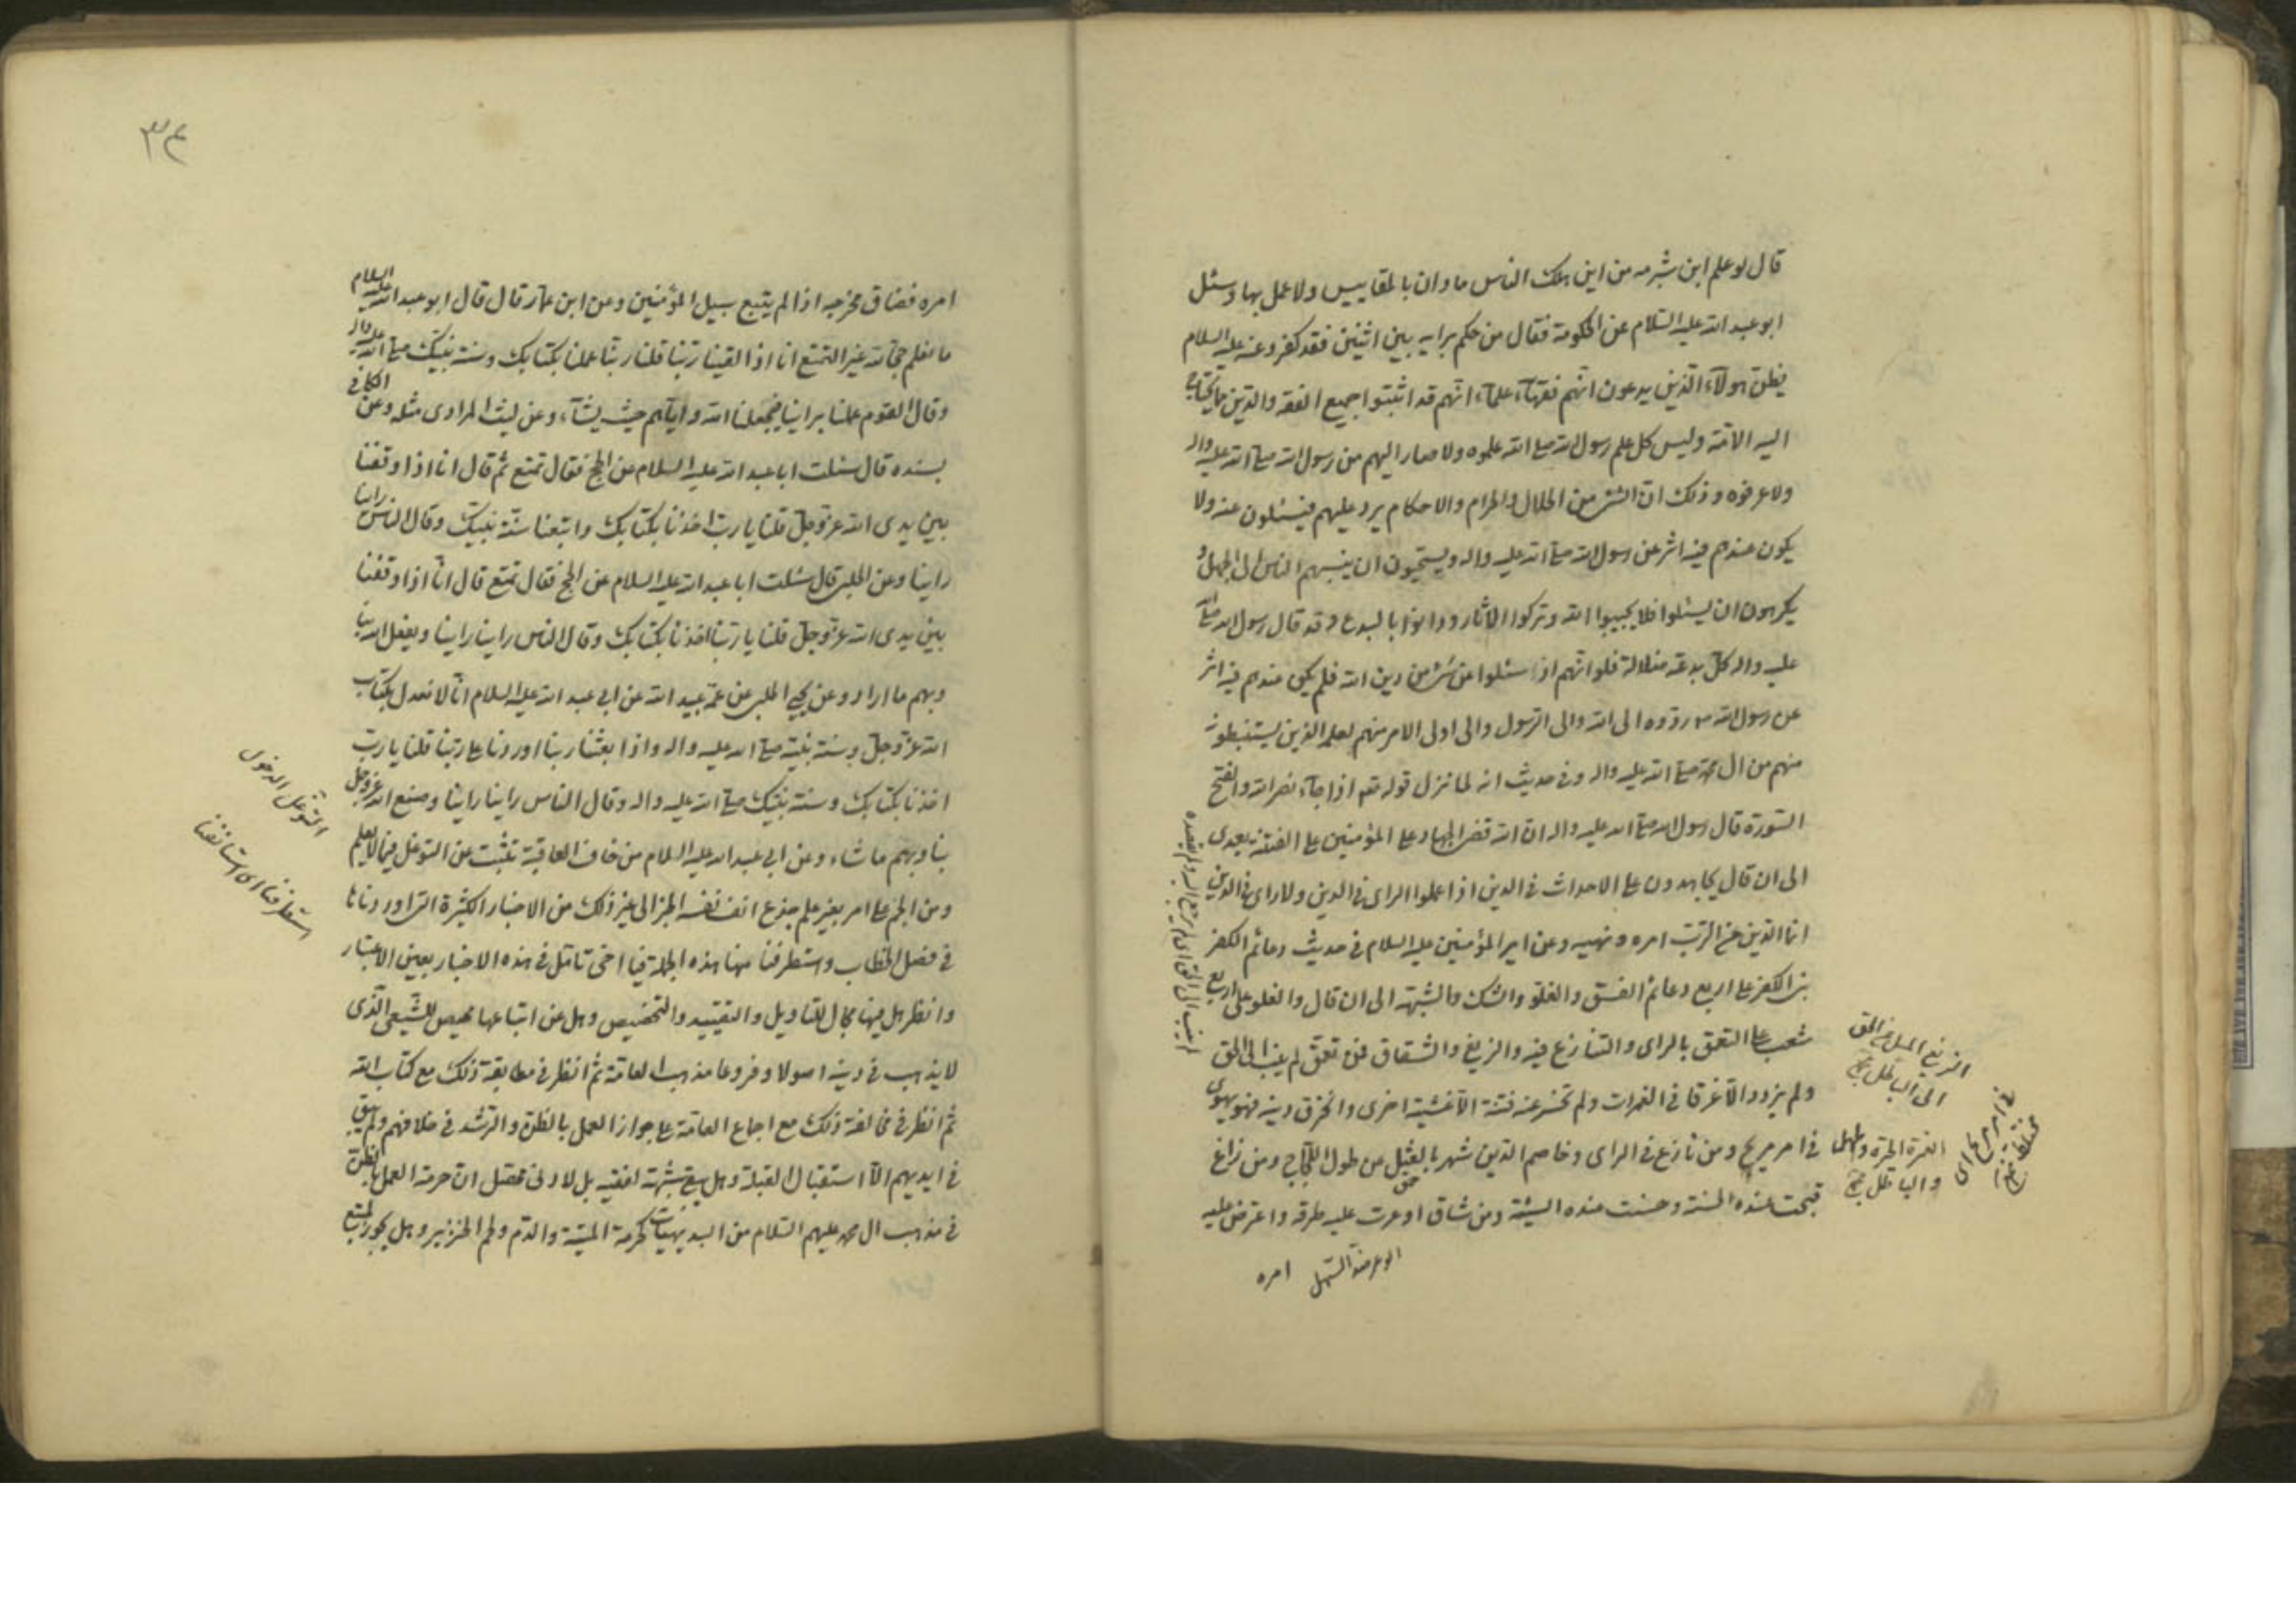 قال لو علم ابن شبرمه من اين هلك الناس ما دان بالمقاييس ولا عمل بها وسئل
ابو عبد الله عليه السلام عن الحكومة فقال من حكم برايه بين اثنين فقد كفر وعنه عليه السلام
يظن هولآء الذين يدعون انهم فقهآء علمآء انهم قد اثبتوا جميع الفقه والدين مما يحتاج
اليه الامّة وليس كل علم رسول الله صلى الله علموه ولا صار اليهم من رسول الله صلى الله عليه واله
ولا عرفوه وذلك ان الشئ من الحلال والحرام والاحكام يرد عليهم فيسئلون عنه ولا
يكون عندهم فيه اثر عن رسول الله صلى الله عليه واله ويستحيون ان ينسبهم الناس الى الجهل و
يكرهون ان يسئلوا فلا يجيبوا الله وتركوا الاثار ودانوا بالبدع وقد قال رسول الله صلى الله
عليه واله كل بدعة ضلالة فلو انهم اذا سئلوا عن شئ من دين الله فلم يكن عندهم فيه اثر
عن رسول الله ص ردّوه الى الله والى الرسول والى اولى الامر منهم لعلمه الذين يستنبطونه
منهم من ال محمد صلى الله عليه واله وفى حديث انه لما نزل قوله تعم اذا جآء نصر الله والفتح
السورة قال رسول الله صلى الله عليه واله ان الله قضى الجهاد على المؤمنين على الفتنة بعدى
الى ان قال يجاهدون على الاحداث فى الدين اذا عملوا الراى فى الدين ولا راى فى الدين
انما الدين من الرب امره ونهيه وعن امير المؤمنين عليه السلام فى حديث دعائم الكفر
بنى الكفر على اربع دعائم الفسق والغلو والشك والشبهة الى ان قال والغلو على اربع
شعب على التعمق بالراى والتنازع فيه والزيغ والشقاق فمن تعمق لم ينب الى الحق
ولم يزدد الا غرقا فى الغمرات ولم تنحسر عنه فتنة الا غشيته اخرى وانخرق دينه فهو يهوى
فى امر مريج ومن نازع فى الراى وخاصم الدين شهر بالعثل من طول اللجاج ومن زاغ
قبحت عنده الحسنة وحسنت عنده السيئة ومن شاق اوعرت عليه طرقه واعترض عليه
الوعر ضد السهل
امره
الزيغ الميل عن الحق
الى الباطل
الغمرة الحيرة والجهل
والباطل
فى امر مريج اى
مختلط
٣٤
امره فضاق مخرجه اذا لم يتبع سبيل المؤمنين وعن ابن عمار قال قال ابو عبد الله عليه السلام
ما نعلم حجا لله غير التمتع انا اذا لقينا ربنا قلنا ربنا عملنا بكتابك وسنة نبيك صلى الله عليه واله
وقال القوم عملنا براينا فيجعلنا الله واياهم حيث يشآء وعن ليث المرادى مثله وعن الكافى
بسنده قال سئلت ابا عبد الله عليه السلام عن الحج فقال تمتع ثم قال انا اذا وقفنا
بين يدى الله عز وجل قلنا يا رب اخذنا بكتابك واتبعنا سنة نبيك وقال الناس راينا
راينا وعن الحلبى قال سئلت ابا عبد الله عليه السلام عن الحج فقال تمتع قال انا اذا وقفنا
بين يدى الله عز وجل قلنا يا ربنا اخذنا بكتابك وقال الناس راينا راينا ويفعل الله بنا
وبهم ما اراد وعن يحيى الحلبى عن عمه عبيد الله عن ابى عبد الله عليه السلام انا لا نعدل بكتاب
الله عز وجل وسنة نبيه صلى الله عليه واله واذا بعثنا ربنا او ردنا على ربنا قلنا يا رب
اخذنا بكتابك وسنة نبيك صلى الله عليه واله وقال الناس راينا راينا وصنع الله عز وجل
بنا وبهم ما شاء وعن ابى عبد الله عليه السلام من خاف العاقبة تثبت عن التوغل فيما لا يعلم
ومن هجم على امر بغير علم جذع انف نفسه الخبر الى غير ذلك من الاخبار الكثيرة التى اوردناها
فى فصل الخطاب واستطرفنا منها هذه الجملة فيا اخى تامل فى هذه الاخبار بعين الاعتبار
وانظر هل فيها مجال للتاويل والتقييد والتخصيص وهل عن اتباعها محيص للشيعى الذى
لا يذهب فى دينه اصولا وفروعا مذهب العامة ثم انظر فى مطابقة ذلك مع كتاب الله
ثم انظر فى مخالفة ذلك مع اجماع العامة على جواز العمل بالظن والرشد فى خلافهم ولم يبق
فى ايديهم الا استقبال القبلة وهل يبق شبهة لفقيه بل لادنى محصل ان حرمة العمل بالظن
فى مذهب ال محمد عليهم السلام من البديهيات كحرمة الميتة والدم ولحم الخنزير وهل يجوز لمتتبع
التوغل الدخول
استطرفنا اى استانفنا